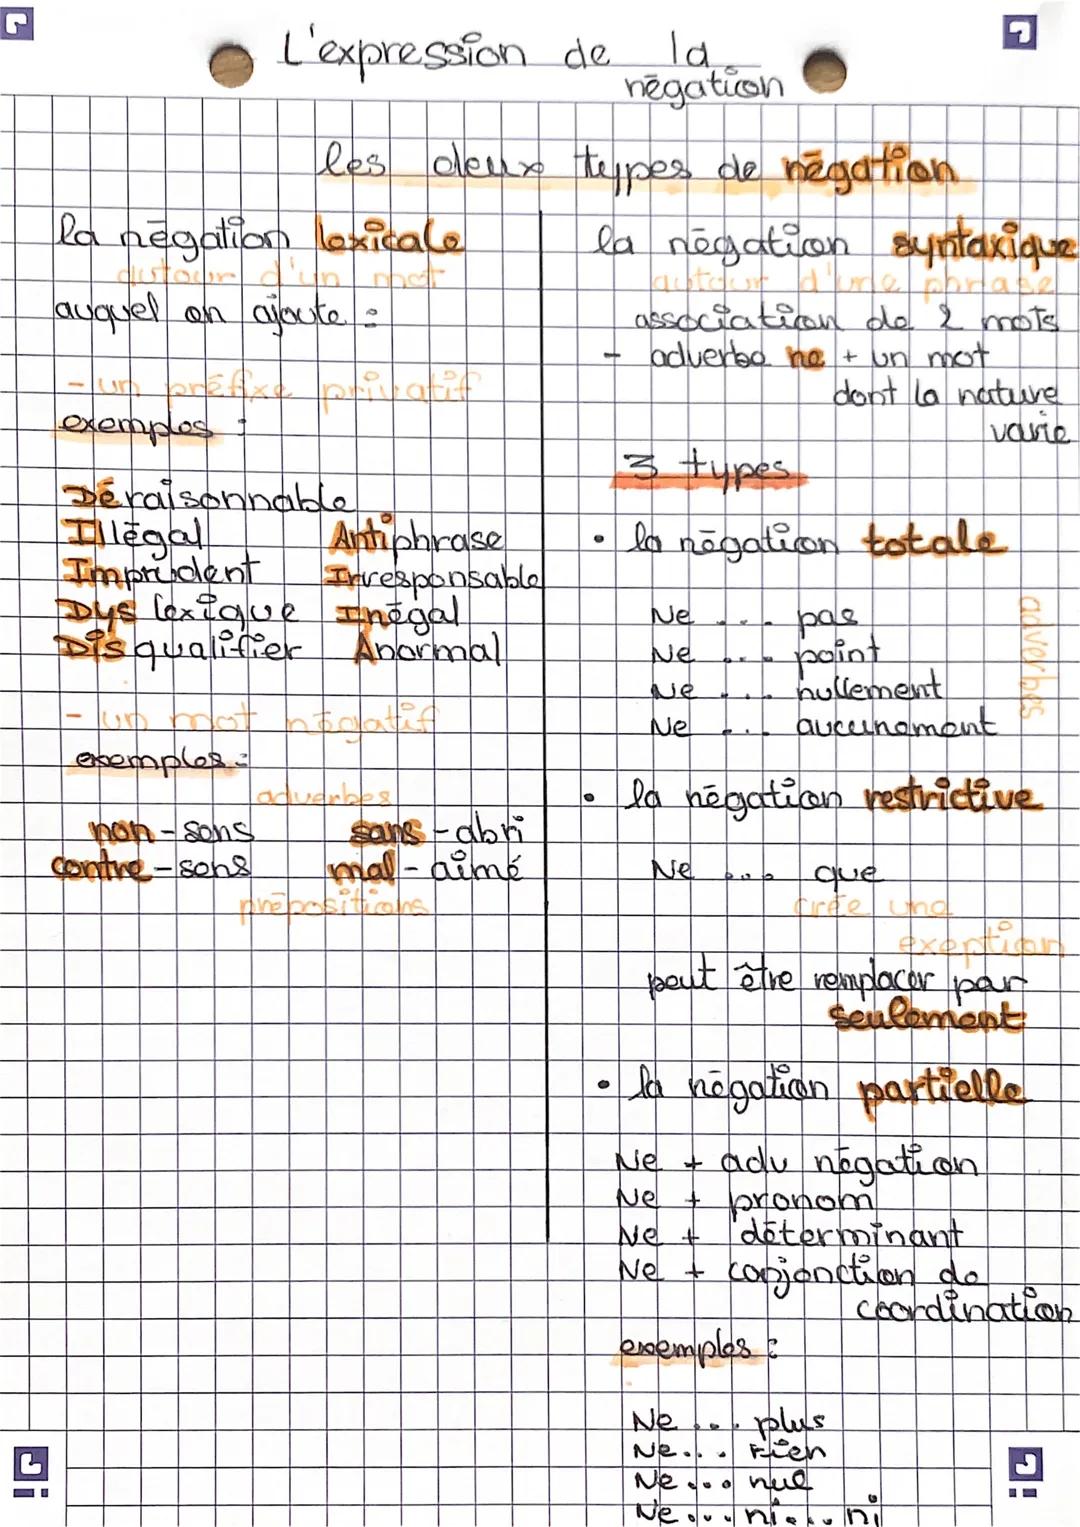 L'expression de la
négation
les deux types de négation
la négation lexicale
autour d'un mot
auquel on ajoute :
- un préfixe privatif
exemples :
Déraisonnable
Illégal Antiphrase
Imprudent Irresponsable
Dyslexique Inégal
Disqualifier Anormal
- un mot négatif
exemples :
adverbes
non-sens sans-abri
contre-sens mal-aimé
prépositions
la négation syntaxique
autour d'une phrase
association de 2 mots
- adverbe ne + un mot
dont la nature
varie
3 types
• la négation totale
Ne ... pas
Ne ... point
Ne ... nullement
Ne ... aucunement
adverbes
• la négation restrictive
Ne ... que
crée une
exeption
peut être remplacer par
seulement
• la négation partielle
Ne + adv négation
Ne + pronom
Ne + déterminant
Ne + conjonction de
coordination
exemples :
Ne ... plus
Ne ... rien
Ne ... nul
Ne ... ni ... ni